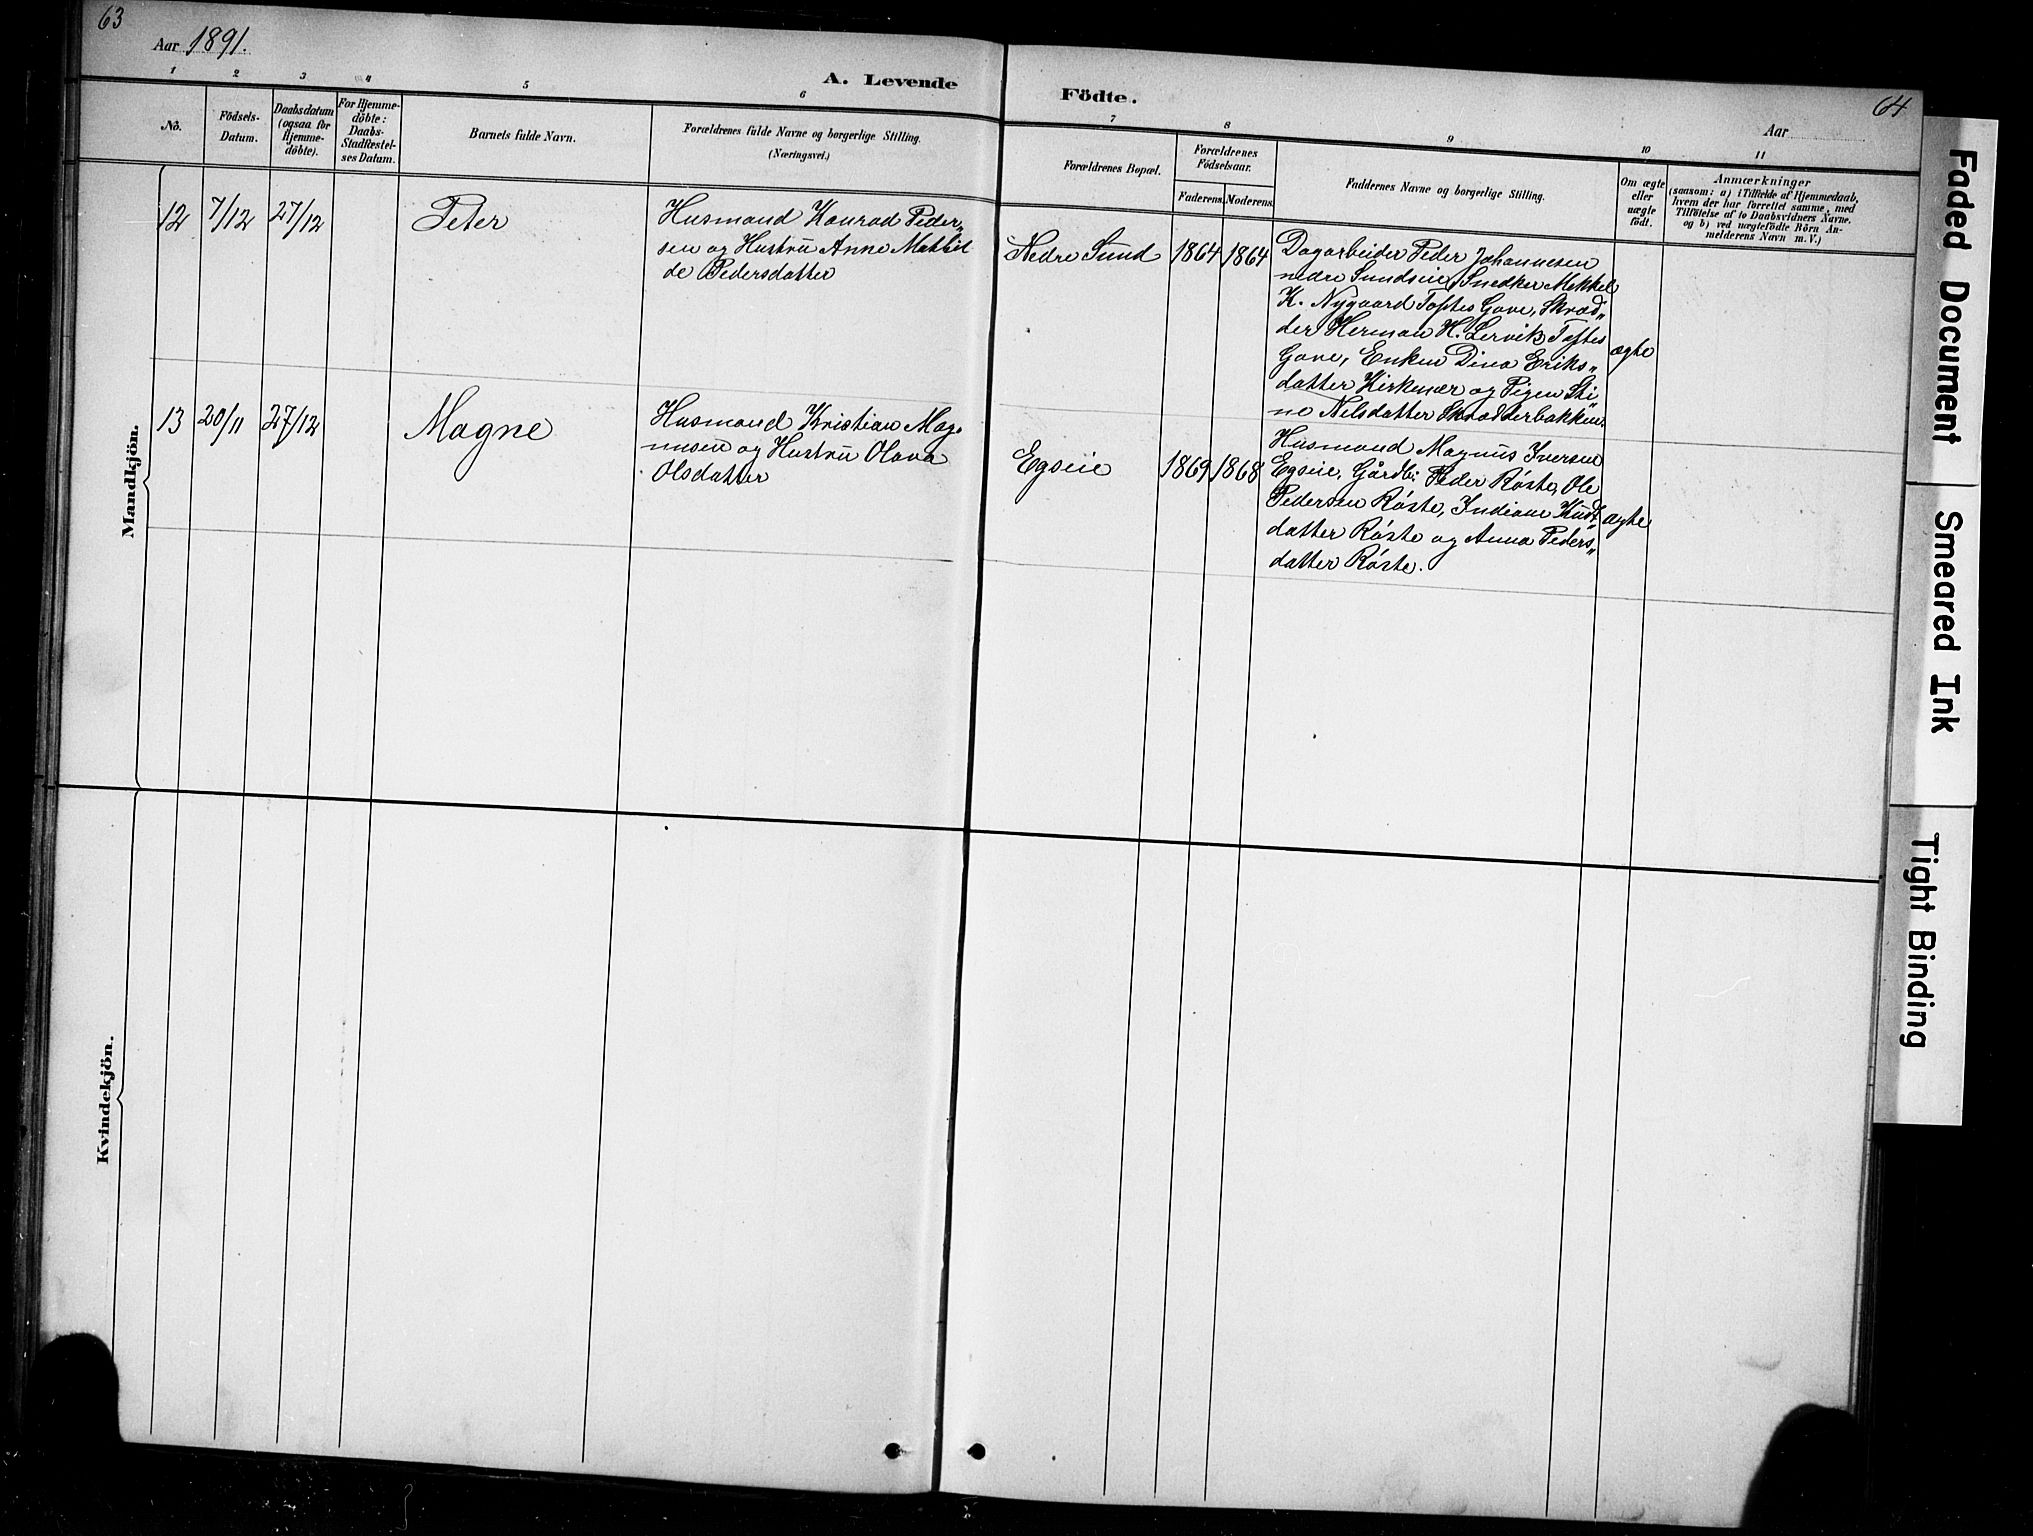 63
Aar 1891.
A. Levende
Födte.
64
Aar
1 2 3 4 5 6
7 8 9 10 11
No.
Födsels-
Datum.
Daabsdatum
(ogsaa for
Hjemme-
döbte).
For Hjemme-
döbte:
Daabs-
Stadfæstel-
ses Datum.
Barnets fulde Navn.
Forældrenes fulde Navne og borgerlige Stilling.
(Næringsvei.)
Forældrenes Bopæl.
Forældrenes
Födselsaar.
Faderens. Moderens.
Faddernes Navne og borgerlige Stilling.
Om ægte
eller
uægte
födt.
Anmærkninger
(saasom: a) i Tilfælde af Hjemmedaab,
hvem der har forrettet samme, med
Tilföielse af to Daabsvidners Navne.
og b) ved uægtefödte Börn An-
melderens Navn m. V.)
Mandkjön.
12 7/12 27/12 Peter
Husmand Konrad Peder„
sen og Hustru Anne Mathil
de Pedersdatter
Nedre Sund 1864 1864
Dagarbeider Peder Johannesen
nedre Sundseie, Snedker Mekkel
K. Nygaard Toftes Gave, Skræd„
der Herman H. Lervik Toftes
Gave, Enken Dina Eriks„
datter Kirkenær og Pigen Sti„
ne Nilsdatter Skrædderbakken.
ægte
13 20/11 27/12 Magne
Husmand Kristian Mag„
nusen og Hustru Olava
Olsdatter
Egseie 1869 1868
Husmand Magnus Iversen
Egseie, Gårdb: Peder Røste, Ole
Pedersen Røste, Indiane Knuds
datter Røste og Anna Peders„
datter Røste.
ægte
Kvindekjön.
Faded Document
Smeared Ink
Tight Binding